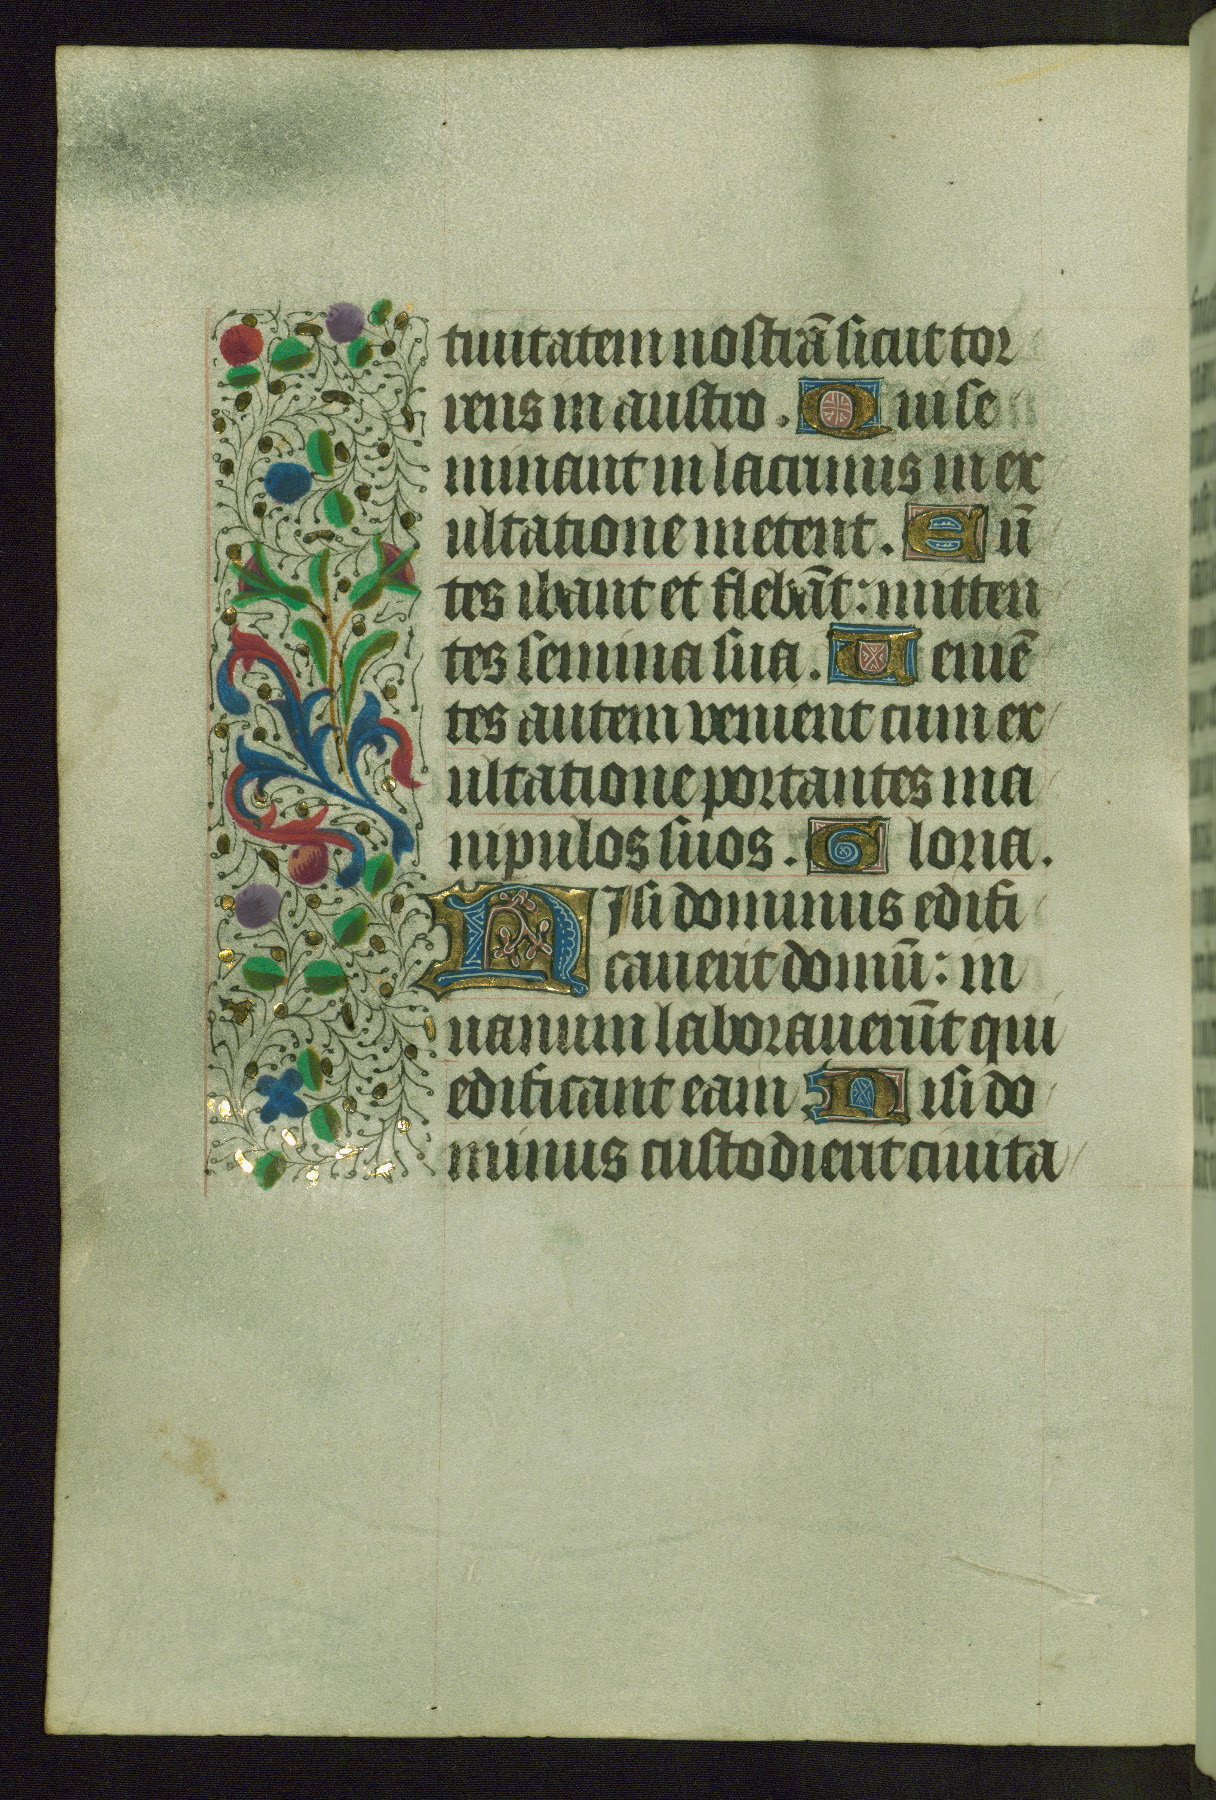 tiuitatem nostrā sicut tor
rens in austro. Qui se
minant in lacrimis in ex
ultatione metent. Eūn
tes ibant et flebāt: mitten
tes semina sua. Ueniē
tes autem venient cum ex
ultatione portantes ma
nipulos suos. Gloria.
NIsi dominus edifi
cauerit domū: in
uanum laborauerūt qui
edificant eam Nisi do
minus custodierit ciuita